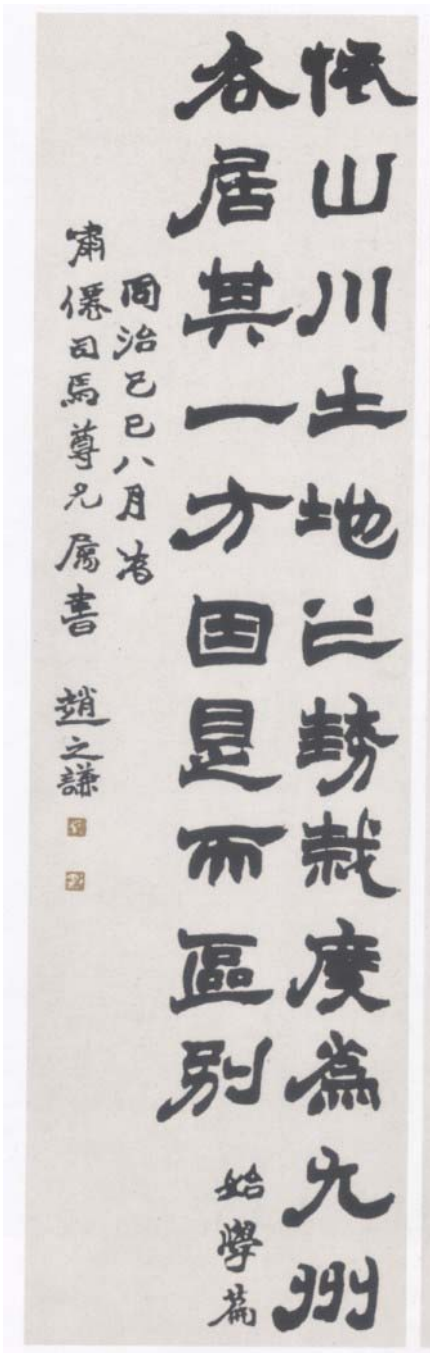 依山川土地之勢裁度為九州
各居其一方因是而區別
始學篇
同治己巳八月為
肅僊司馬尊兄属書 趙之謙